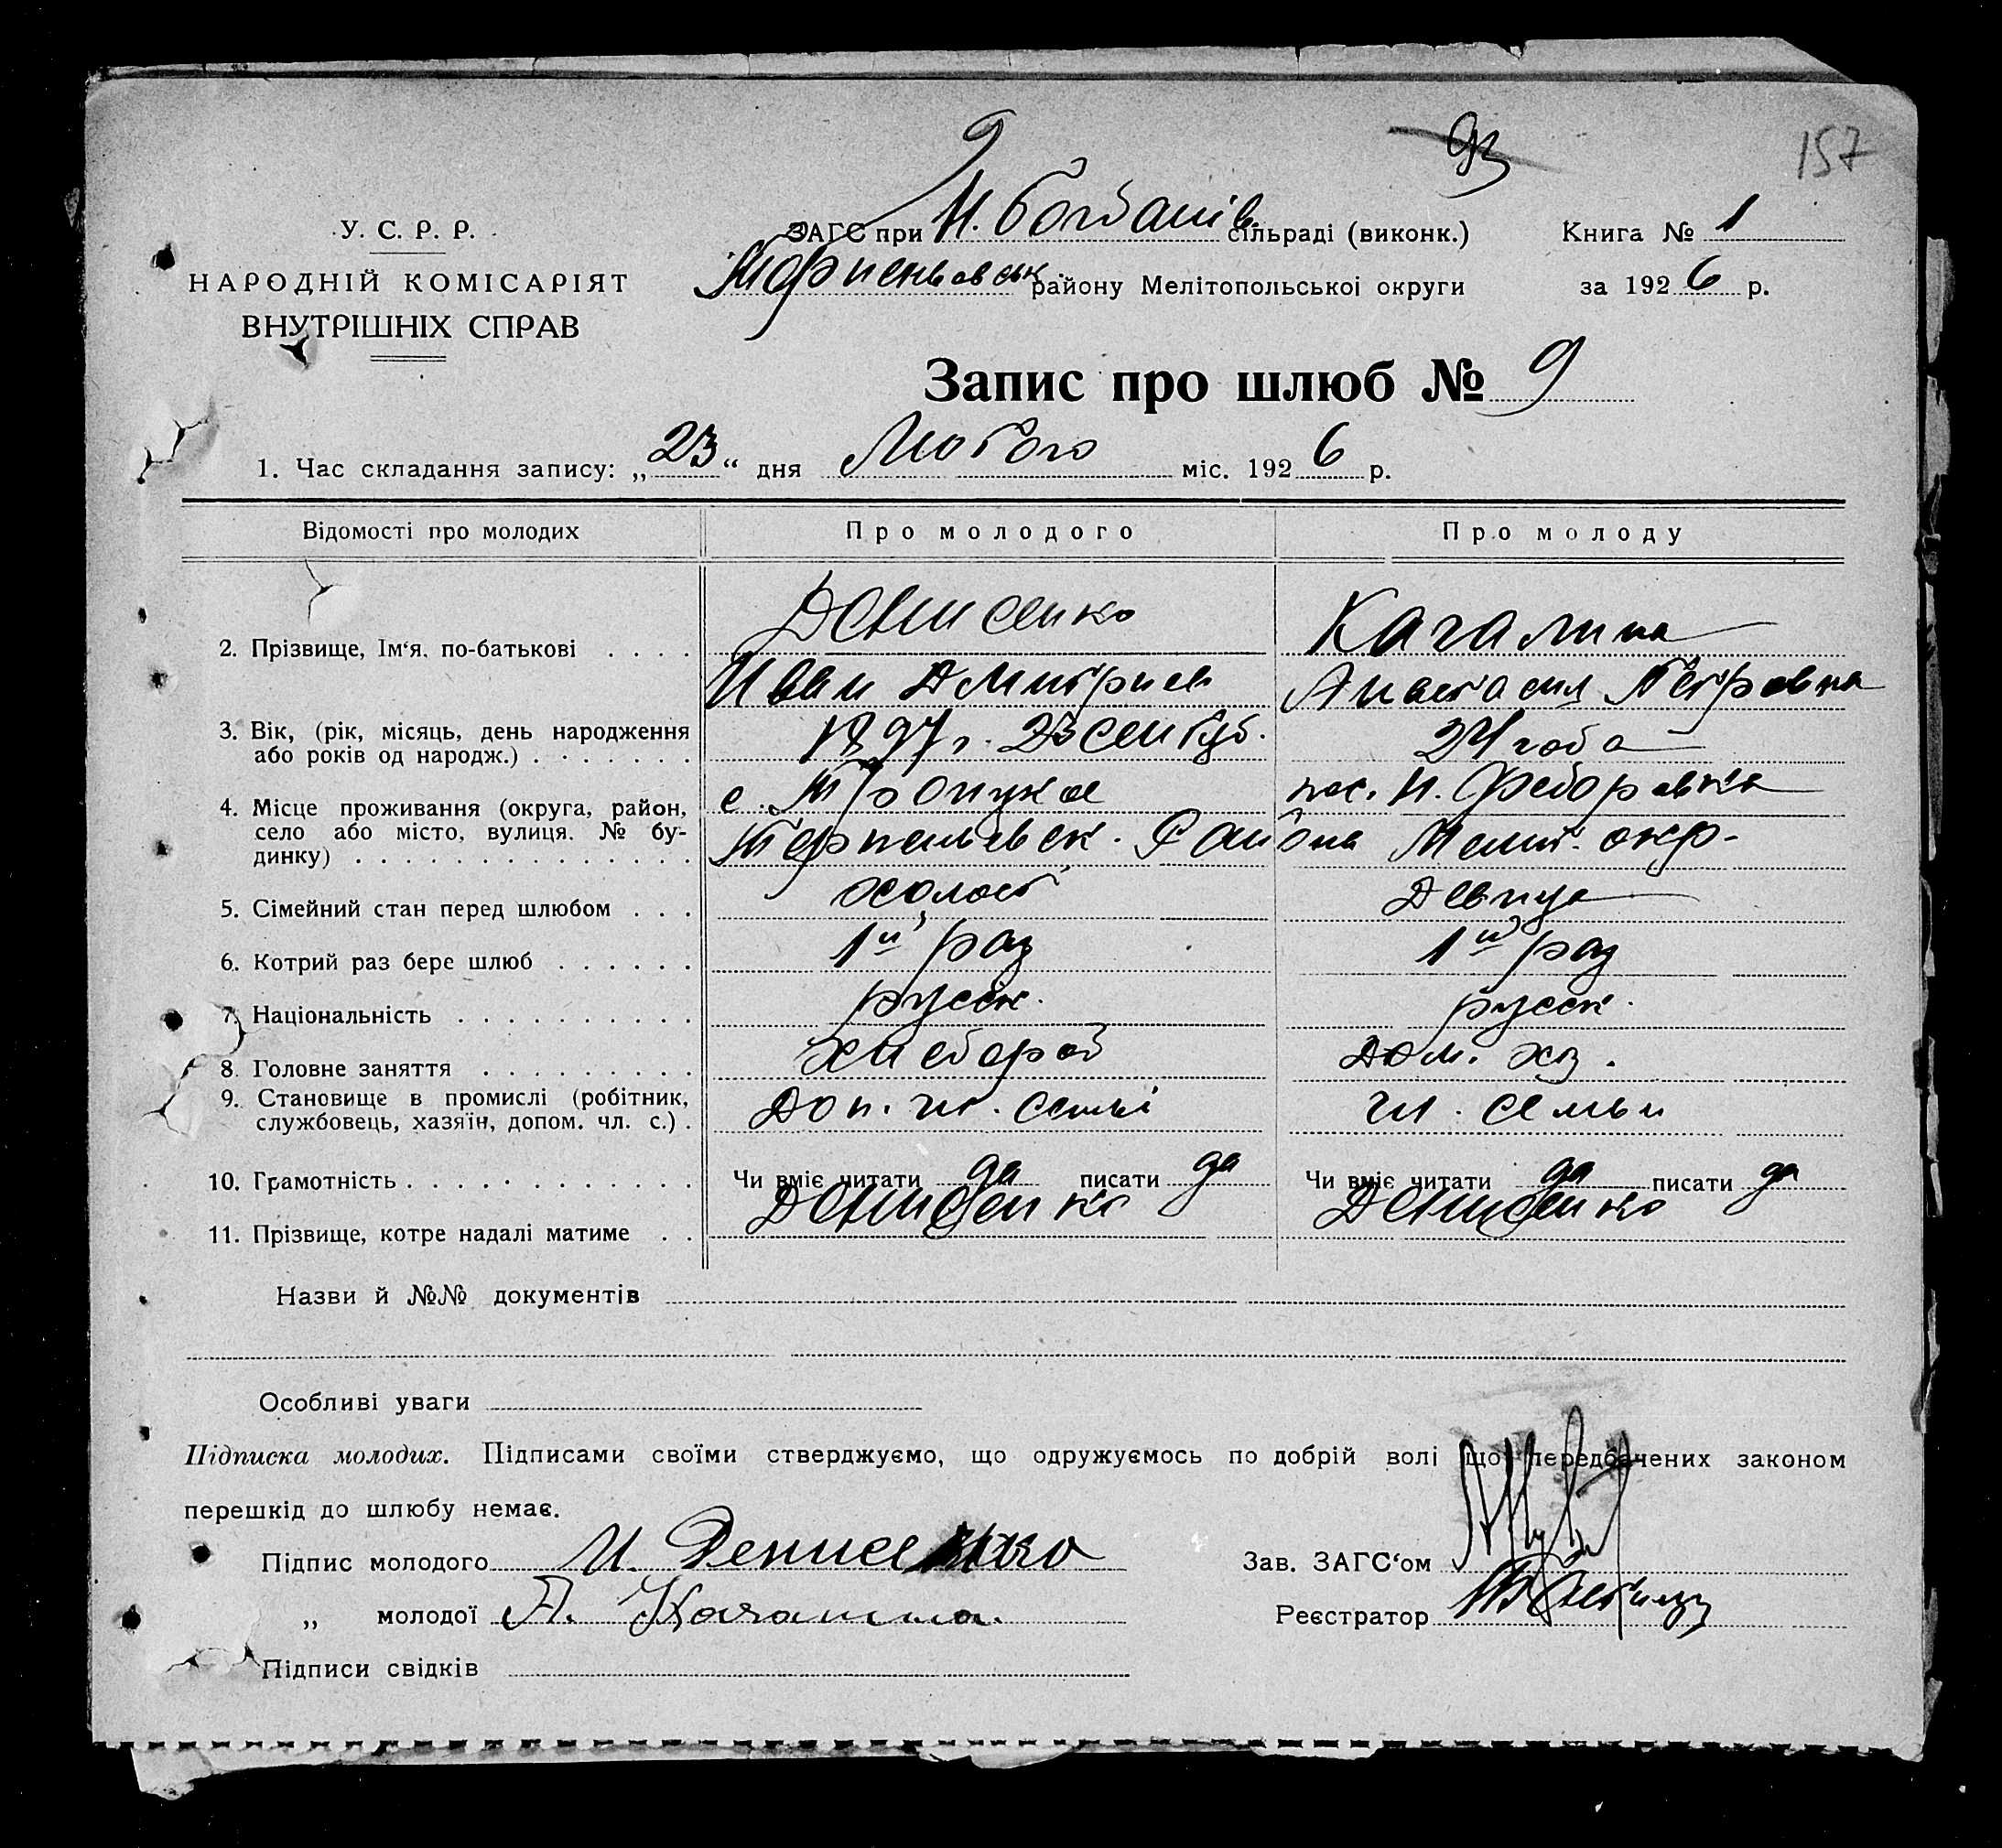 9
93
157
У. С. Р. Р.
НАРОДНІЙ КОМІСАРІЯТ
ВНУТРІШНІХ СПРАВ
ЗАГС при Н. Богданів. сільраді (виконк.)
Книга № 1
Терпеньевськ. району Мелітопольської округи
за 1926 р.
Запис про шлюб № 9
1. Час складання запису: „23“ дня Лютого міс. 1926 р.
Відомості про молодих Про молодого Про молоду
2. Прізвище, Ім‘я, по-батькові . . . . Денисенко Качалина
Иван Дмитриев Анастасия Петровна
3. Вік, (рік, місяць, день народження 1897 г. 23 сентяб. 24 года
або років од народж.) . . . . . . .
4. Місце проживання (округа, район, с. Троицкое пос. Н. Федоровка
село або місто, вулиця. № бу- Терпеньевск. Района Мелит. окр.
динку) . . . . . . . . . . . . . .
5. Сімейний стан перед шлюбом . . . холост девица
6. Котрий раз бере шлюб . . . . . . 1й раз 1й раз
7. Національність . . . . . . . . . . русск. русск.
8. Головне заняття . . . . . . . . . хлебороб дом. хоз.
9. Становище в промислі (робітник, доп. чл. семьі чл. семьи
службовець, хазяїн, допом. чл. с.) .
10. Грамотність . . . . . . . . . . . . Чи вміє читати да писати да Чи вміє читати да писати да
11. Прізвище, котре надалі матиме . . Денисенко Денисенко
Назви й №№ документів
Особливі уваги
Підписка молодих. Підписами своїми стверджуємо, що одружуємось по добрій волі що передбачених законом
перешкід до шлюбу немає.
Підпис молодого И. Денисенко Зав. ЗАГС‘ом
„ молодої А. Качалина. Реєстратор
Підписи свідків